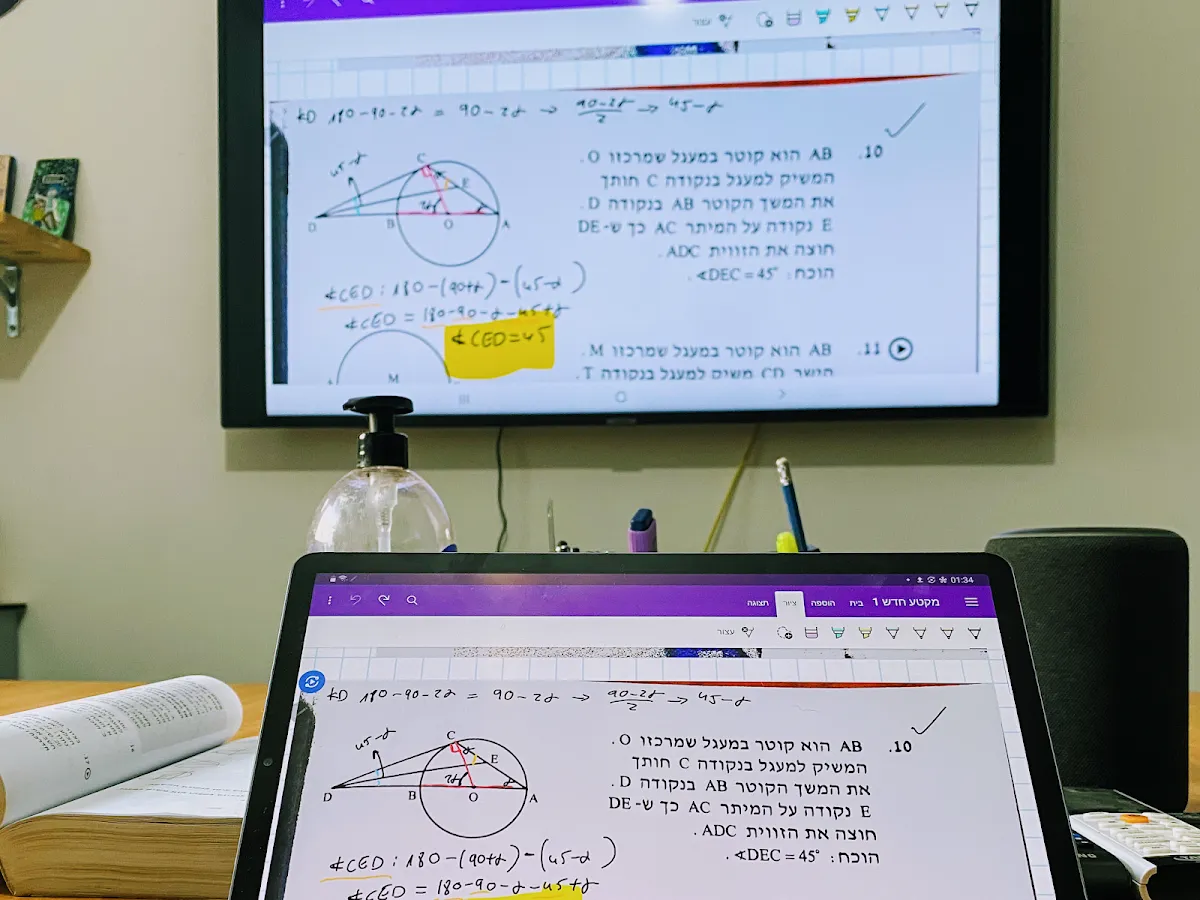 עצור
∢D 180-90-2α = 90-2α → (90-2α)/2 → 45-α
10. AB הוא קוטר במעגל שמרכזו O.
המשיק למעגל בנקודה C חותך
את המשך הקוטר AB בנקודה D.
E נקודה על המיתר AC כך ש-DE
חוצה את הזווית ADC.
הוכח: ∢DEC = 45°.
45-α
C
E
2α
α
D
B
O
A
∢CED : 180-(90+α)-(45-α)
∢CED = 180-90-α-45+α
∢CED=45
M
11. AB הוא קוטר במעגל שמרכזו M.
הישר CD משיק למעגל בנקודה T.
01:34
מקטע חדש 1 בית הוספה ציור תצוגה
עצור
∢D 180-90-2α = 90-2α → (90-2α)/2 → 45-α
10. AB הוא קוטר במעגל שמרכזו O.
המשיק למעגל בנקודה C חותך
את המשך הקוטר AB בנקודה D.
E נקודה על המיתר AC כך ש-DE
חוצה את הזווית ADC.
הוכח: ∢DEC = 45°.
45-α
C
α
E
2α
α
D
B
O
A
∢CED : 180-(90+α)-(45-α)
∢CED = 180-90-α-45+α